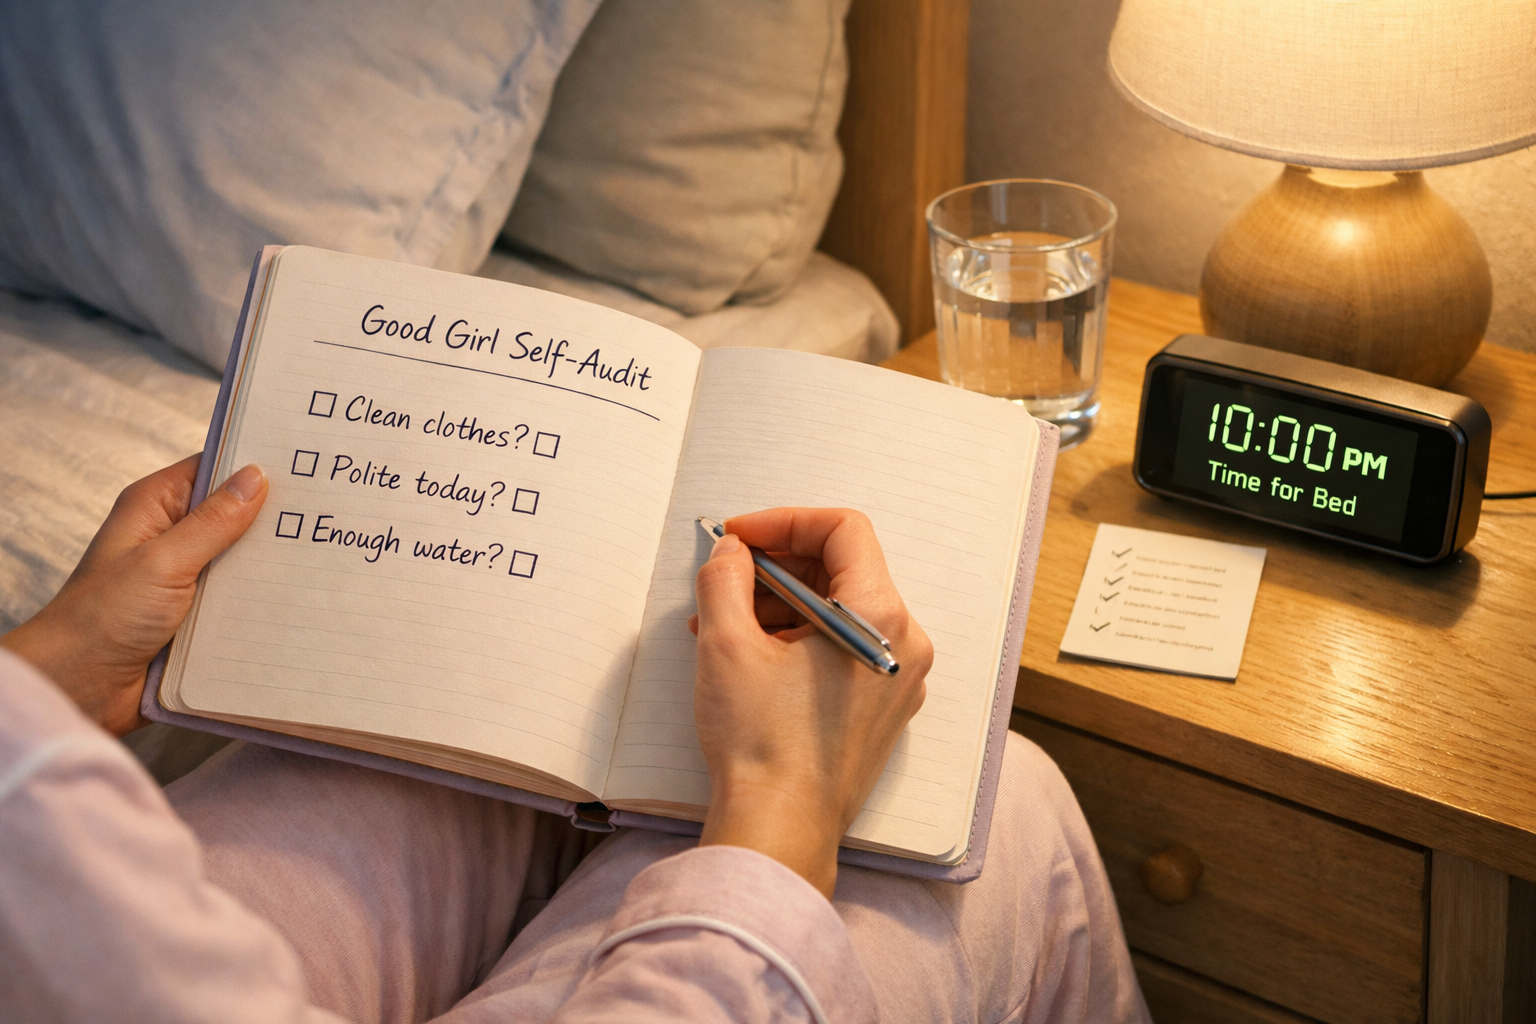 Good Girl Self-Audit
☐ Clean clothes? ☐
☐ Polite today? ☐
☐ Enough water? ☐
10:00 PM
Time for Bed